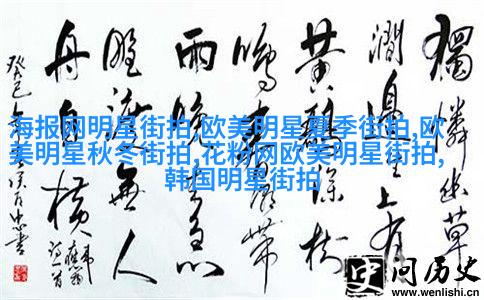 獨憐幽草
澗邊生上有
黄鸝深樹
鳴春潮帶
雨晚来急
野渡無人
舟自橫
癸巳
海报网明星街拍,欧美明星夏季街拍,欧
美明星秋冬街拍,花粉网欧美明星街拍,
韩国明星街拍
问历史
www.wenlishi.cn